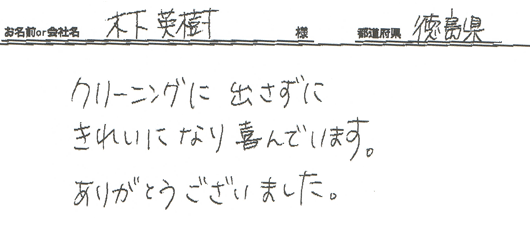 お名前or会社名 木下英樹 様 都道府県 徳島県
クリーニングに 出さずに
きれいになり喜んでいます。
ありがとうございました。